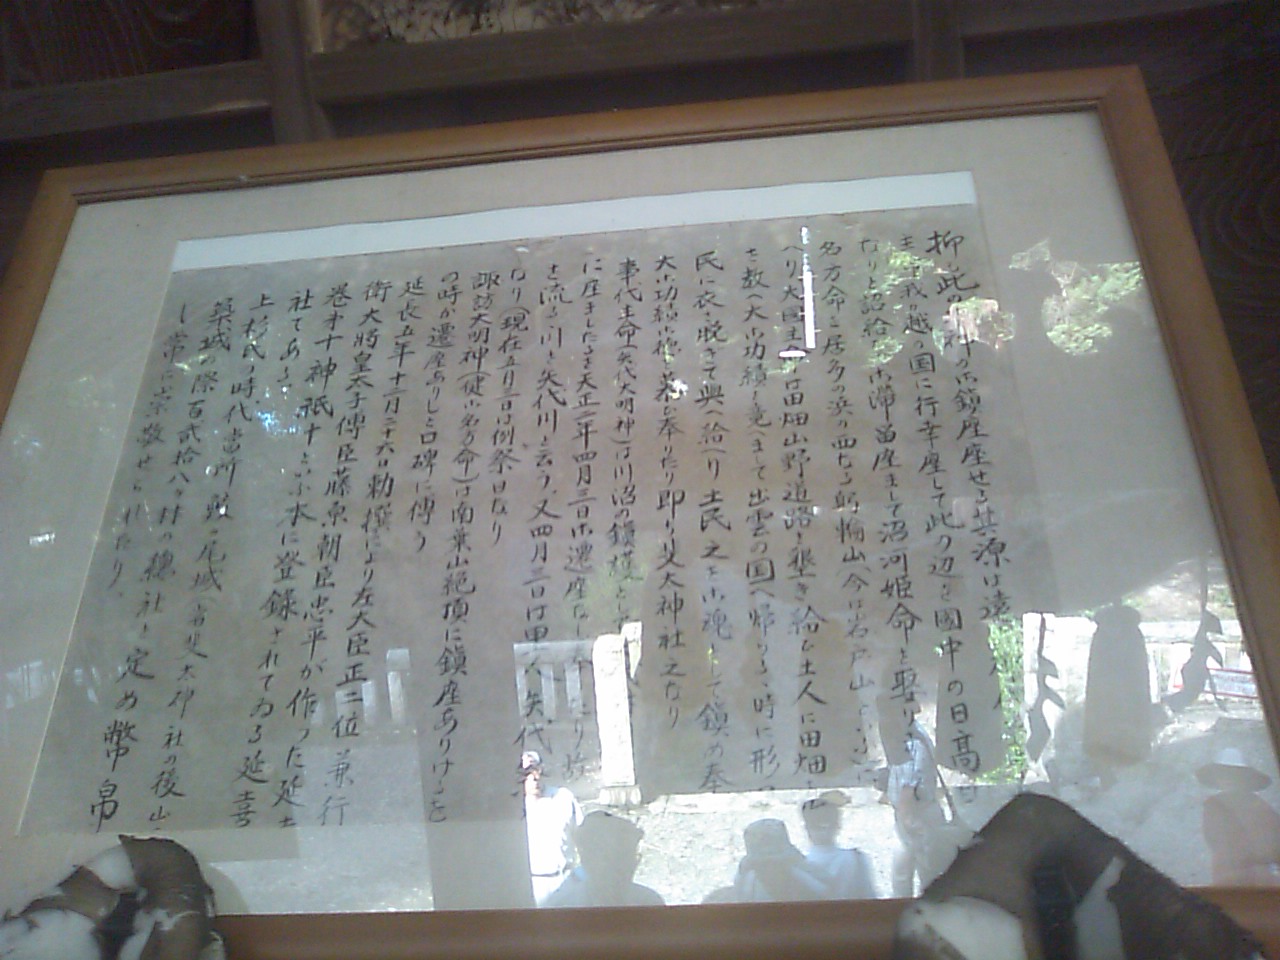 抑此の神の御鎮座座せる其源は遠
我越の国に行幸座して此の辺を国中の日高
なりと認給ひ御滞留座まして沼河姫命を娶り
名方命と居多の浜の西なる躬輪山(今は岩戸山
へり大国主命は田畑山野道路を墾き給ひ土人に田畑
を教へ大御功績を竟へまして出雲の国へ帰ります時に形
民に衣を脱ぎて興へ給へり土民之を御魂として鎮め奉
大御功績御徳を恭ひ奉りたり即り斐太神社之なり
事代主命(矢代大明神)は川沼の鎮護として
に座ましたるを天正二年四月三日御遷座なし
を流る川を矢代川と云う、又四月三日は
なり(現在五月三日は例祭日なり
諏訪大明神(健御名方命)は南葉山絶頂に鎮座ありけるを
の時か遷座ありしと口碑に傳う
延長五年十二月二十六日勅撰により左大臣正二位兼行
衛大將皇太子傅臣藤原朝臣忠平が作った延
巻才十神祇十といふ本に登録されてゐる延喜
社である
上杉氏の時代当所鮫ヶ尾城(斐太神社の後山
築城の際百貮拾八ヶ村の總社と定め幣帛
し常に崇敬せられたり、